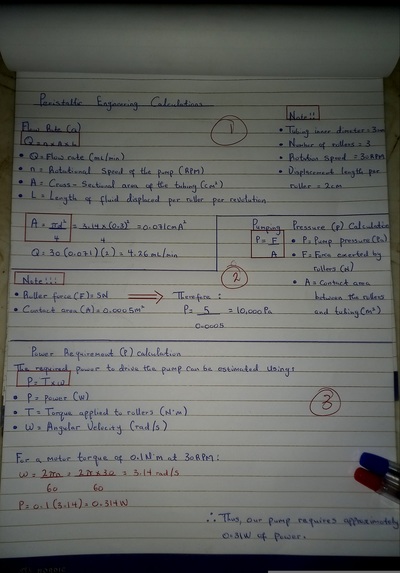 Peristaltic Engineering Calculations
1
Note!!
Flow Rate (Q)
Q = n × A × L
• Q = Flow rate (mL/min)
• n = Rotational Speed of the pump (RPM)
• A = Cross-Sectional area of the tubing (cm²)
• L = Length of fluid displaced per roller per revolution
• Tubing inner diameter = 3mm
• Number of rollers = 3
• Rotation speed = 30RPM
• Displacement length per
roller = 2cm
A = πd²/4 = 3.14 × (0.3)²/4 = 0.071cm²
Q = 30(0.071)(2) = 4.26 mL/min
Pumping Pressure (P) Calculation
P = F/A
• P = Pump pressure (Pa)
• F = Force exerted by
rollers (N)
• A = Contact area
between the rollers
and tubing (m²)
2
Note!!!
• Roller force (F) = 5N
• Contact area (A) = 0.0005m²
Therefore:
P = 5/0.0005 = 10,000Pa
Power Requirement (P) calculation
The required power to drive the pump can be estimated using:
P = T × ω
• P = Power (W)
• T = Torque applied to rollers (N·m)
• ω = Angular Velocity (rad/s)
3
For a motor torque of 0.1N m at 30RPM:
ω = 2πn/60 = 2π × 30/60 = 3.14 rad/s
P = 0.1(3.14) = 0.314W
∴ Thus, our pump requires approximately
0.31W of power.